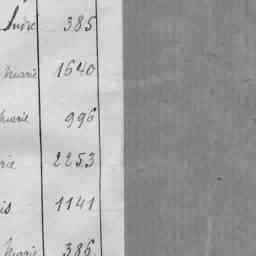 André 385
Marie 1640
Marie 996
rie 2253
is 1141
Marie 386